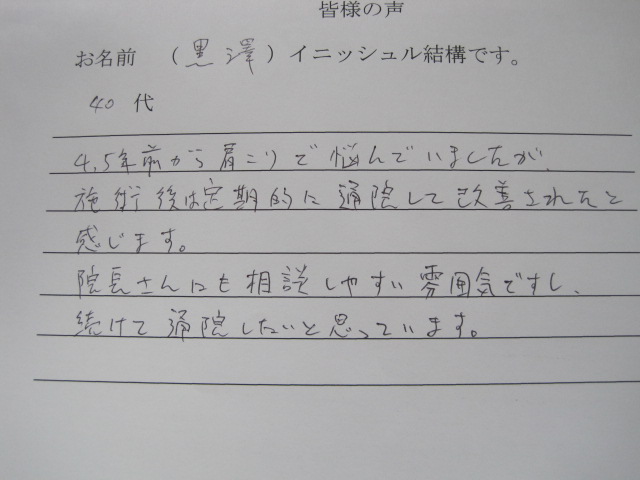 皆様の声
お名前 （黒澤）イニッシュル結構です。
40 代
4,5年前から肩こりで悩んでいましたが、
施術後は定期的に通院して改善されたと
感じます。
院長さんにも相談しやすい雰囲気ですし、
続けて通院したいと思っています。